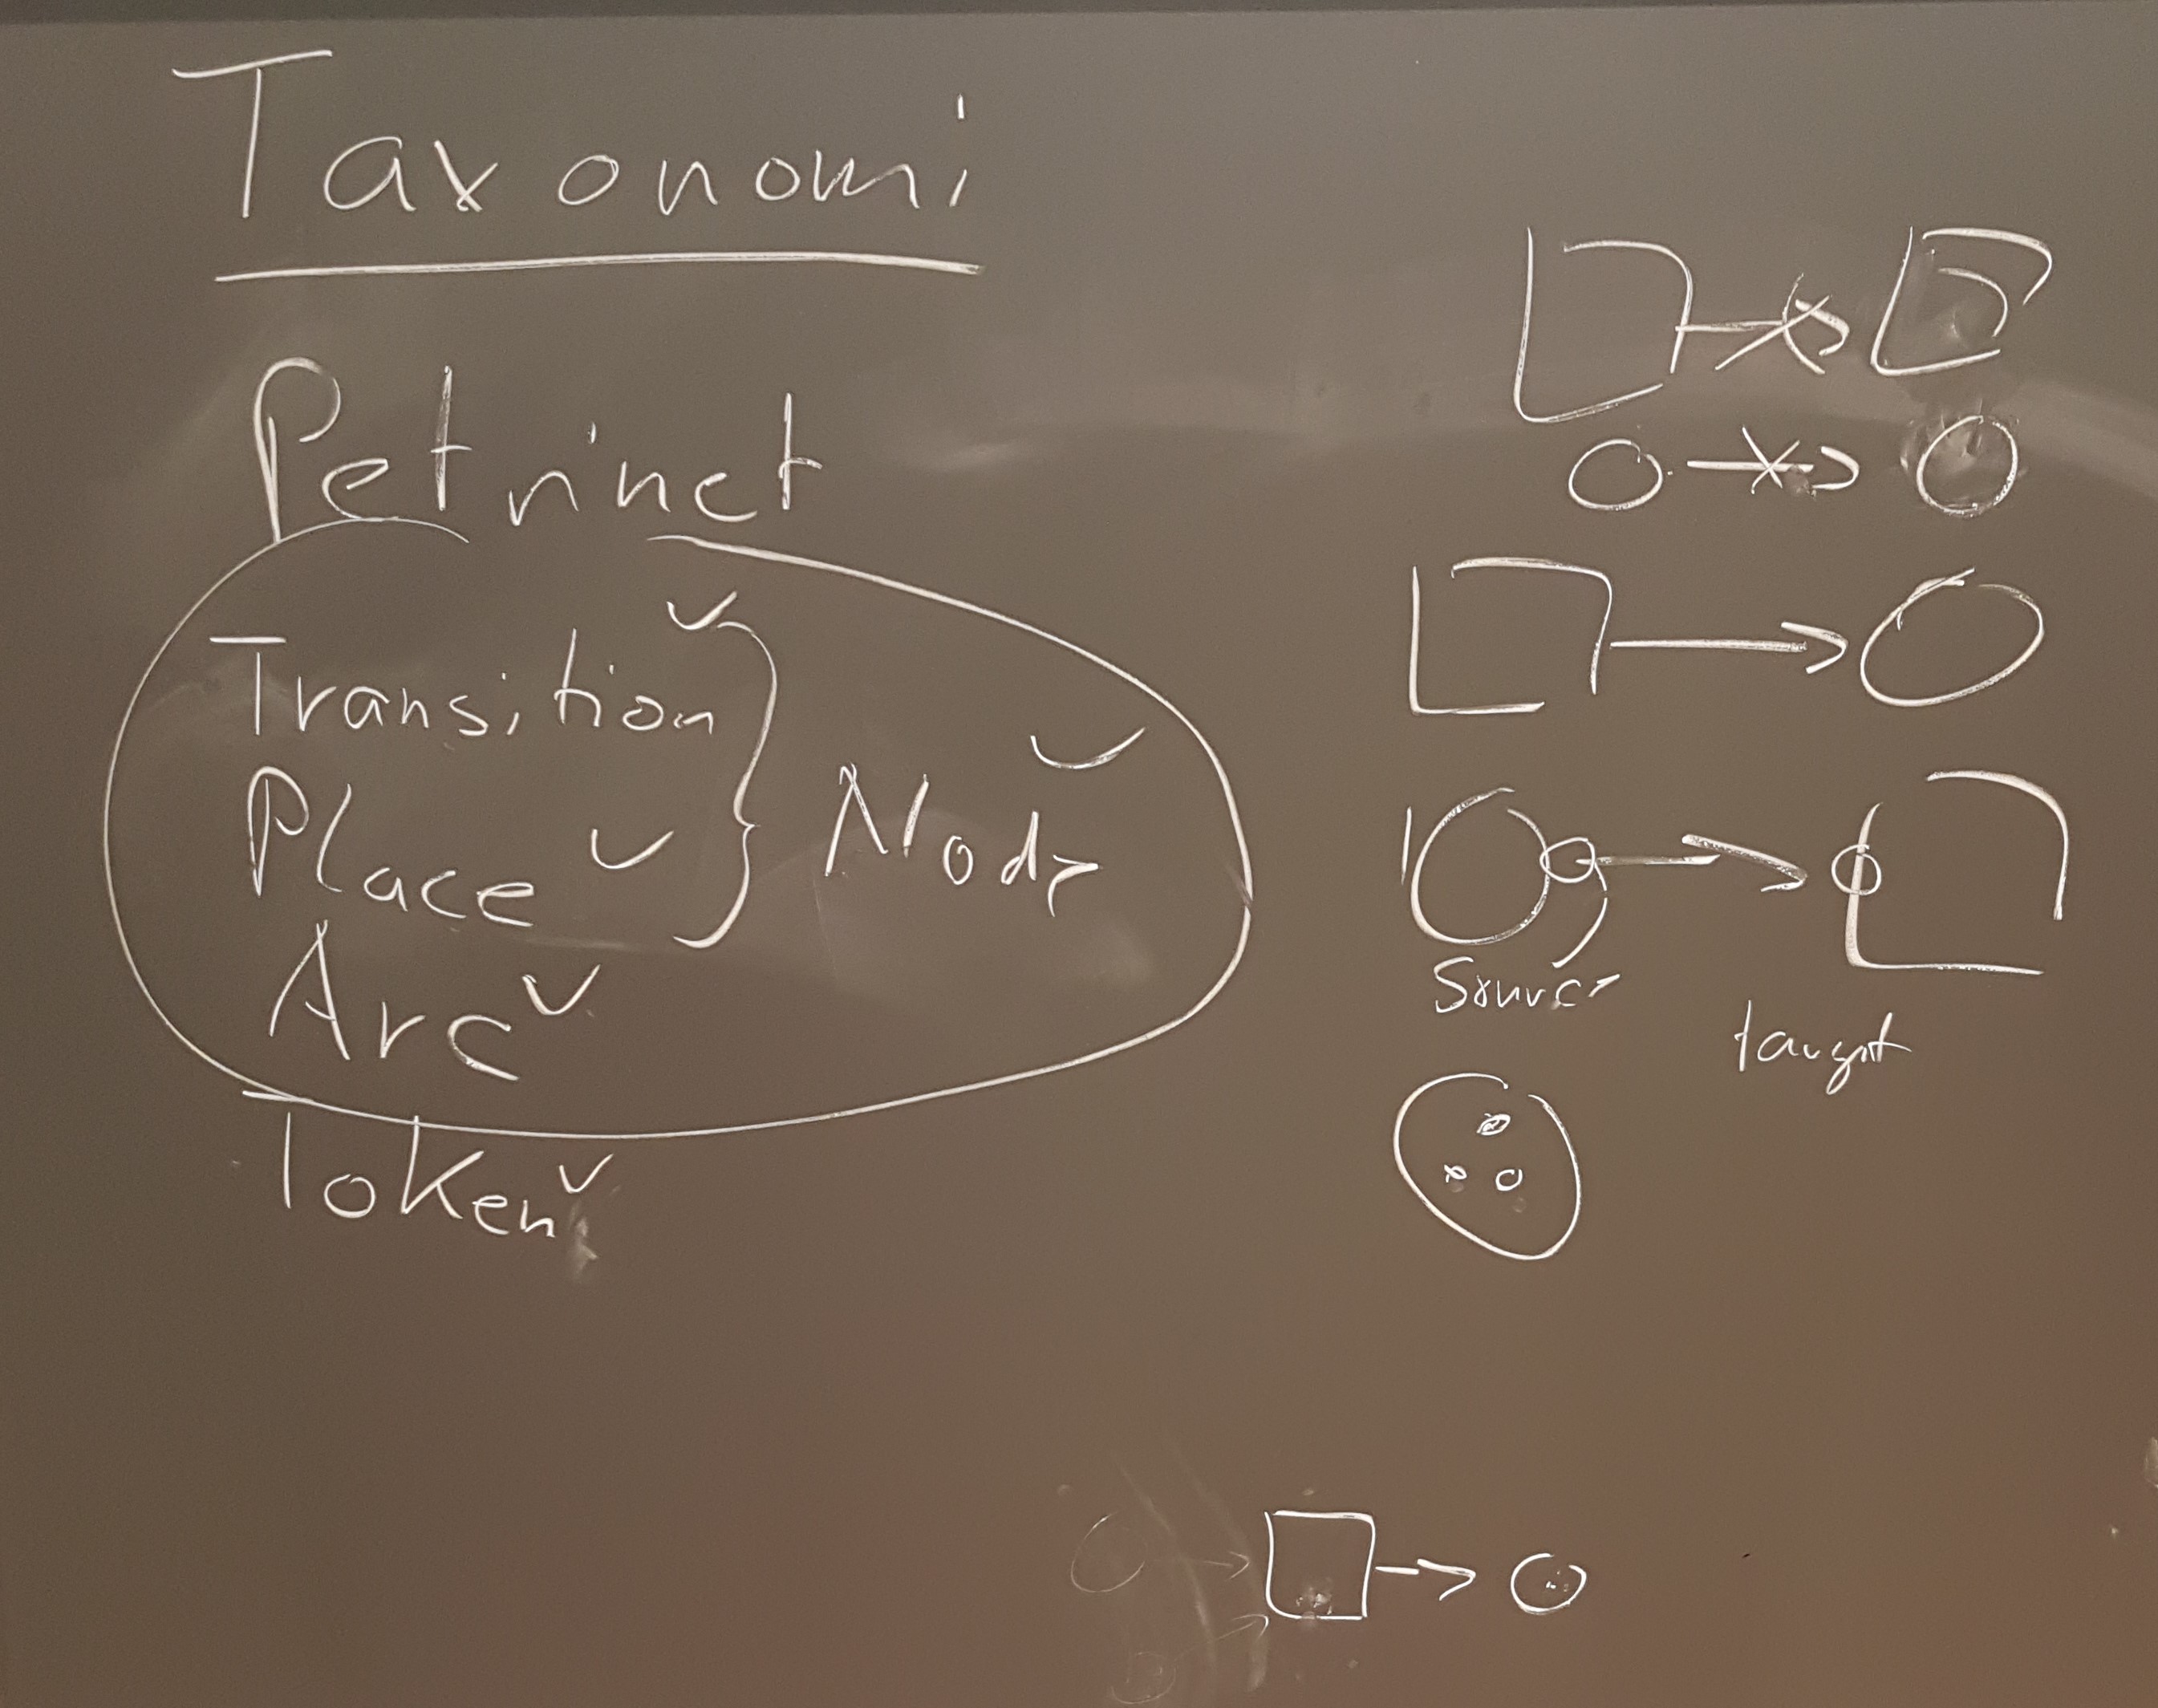 Taxonomi
Petrinet
Transition
Place
Node
Arc
Token
Source
target